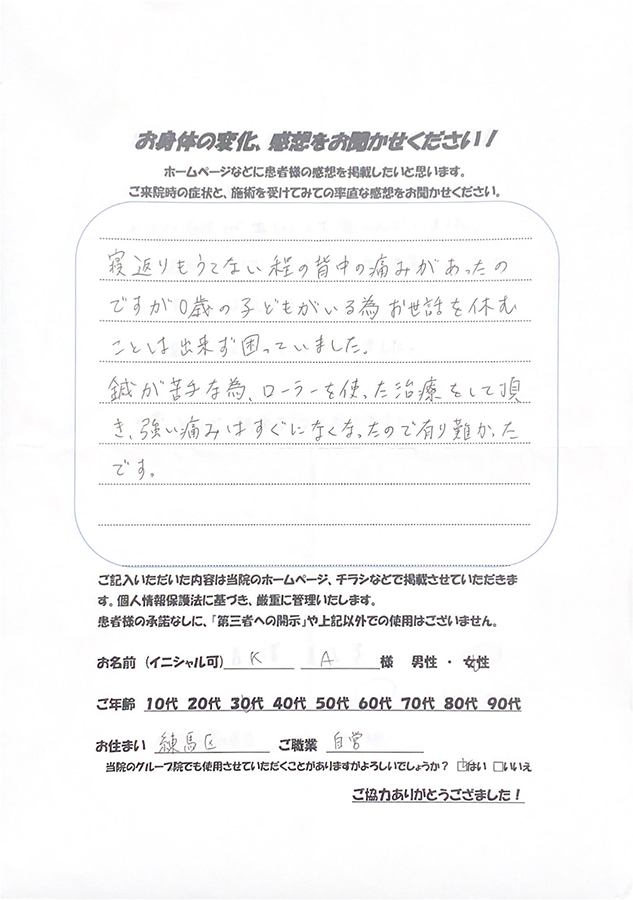 お身体の変化、感想をお聞かせください！
ホームページなどに患者様の感想を掲載したいと思います。
ご来院時の症状と、施術を受けてみての率直な感想をお聞かせください。
寝返りもうてない程の背中の痛みがあったの
ですが0歳の子どもがいる為お世話を休む
ことは出来ず困っていました。
鍼が苦手な為、ローラーを使った治療をして頂
き、強い痛みはすぐになくなったので有り難かった
です。
ご記入いただいた内容は当院のホームページ、チラシなどで掲載させていただきま
す。個人情報保護法に基づき、厳重に管理いたします。
患者様の承諾なしに、「第三者への開示」や上記以外での使用はございません。
お名前（イニシャル可） K A 様 男性 ・ 女性
ご年齢 10代 20代 30代 40代 50代 60代 70代 80代 90代
お住まい 練馬区 ご職業 自営
当院のグループ院でも使用させていただくことがありますがよろしいでしょうか？ □はい □いいえ
ご協力ありがとうござました！